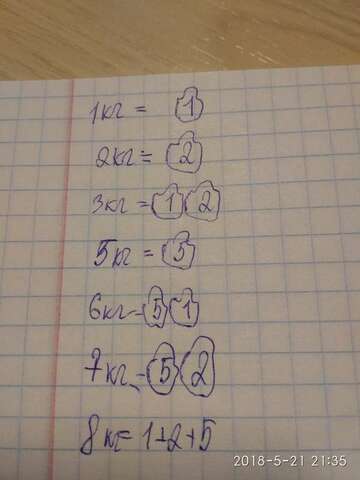 1кг = 1
2кг = 2
3кг = 1 2
5кг = 5
6кг - 5 1
7кг - 5 2
8кг = 1+2+5
2018-5-21 21:35